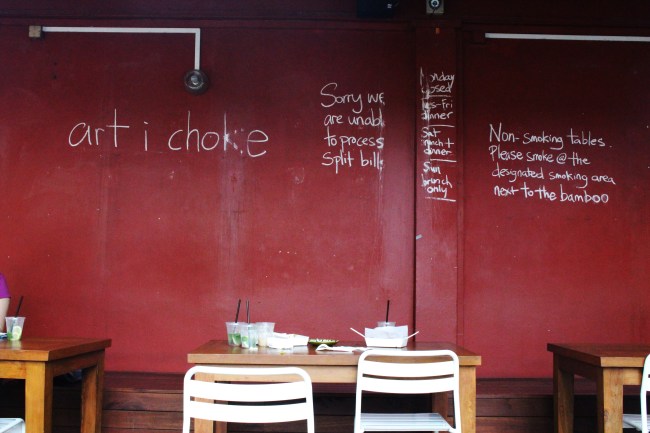 art i choke
Sorry we
are unabl
to process
Split bill
onday
closed
Tues-Fri
dinner
Sat
brunch +
dinner
Sun
brunch
only
Non-smoking tables.
Please smoke @ the
designated smoking area
next to the bamboo